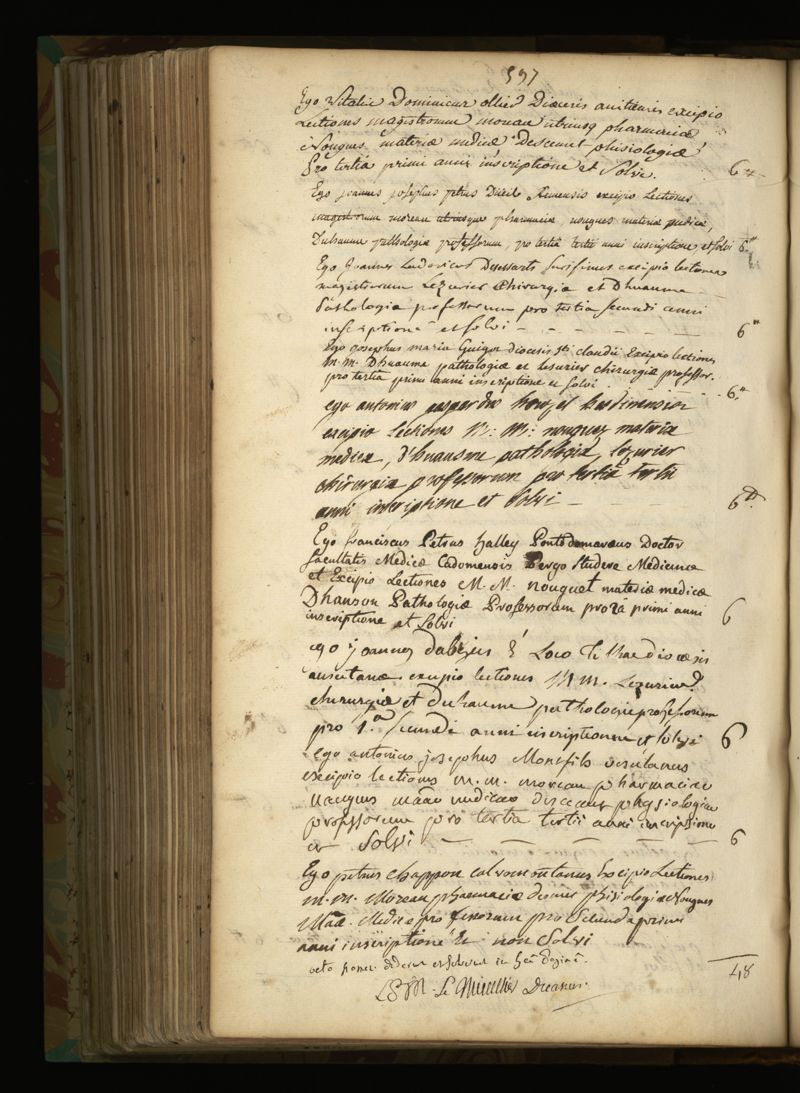 597
Ego vitalis Dominicus ollier Diœcesis excipio
Lectiones magistrorum moreau utriusq pharmaciæ
Nougues materiæ medicæ Descemet phisiologiæ
Pro tertiâ primi anni inscriptione et Solvi. 6
Ego joannes josephus petrus excipio Lectiones
magistrorum moreau utriusque pharmaciæ, nougues materiæ medicæ,
Duhaume pathologiæ professorum, pro tertiâ tertii anni inscriptione et solvi 6
Ego Joannes Ludovicus Desessarts excipio lectiones
magistrorum Lezurier Chirurgiæ et Dhuaume
Pathologiæ professorum pro tertia secundi anni
inscriptione et solvi - - - - - 6
Ego josephus maria Guigot diocesis sti claudii Excipio lectiones
m. m. Dhuaume pathologiæ et Lesurier chirurgiæ professor.
pro tertia primi anni inscriptione et solvi 6
ego antonius
excipio Lectiones M: M: nouguez materiæ
medicæ, d'huaume pathologiæ, lezurier
chirurgiæ professorum pro tertiâ tertii
anni inscriptione et solvi 6
Ego franciscus Petrus halley Doctor
facultatis Medicæ Cadomensis Pergo Studere Medicinæ
et Excipio Lectiones M. M. nouguet materiæ medicæ
Dhauson Pathologiæ Professorum pro 2a primi anni
inscriptione et Solvi 6
ego joannes è Loco diœcesis
auscitanæ excipio lectiones M m. Lezurier
chirurgiæ et duhaume pathologiæ professorum
pro 1.â secundi anni inscriptionem et solvi 6
Ego antonius josephus Monefils
excipio lectiones m. m. moreau pharmaciæ
naugues maæ medicæ descemet physiologiæ
professorum pro tertia tertii anni inscriptione
et Solvi - - - - - 6
Ego petrus chappon calvomontanus Excipio Lectiones
m. m. Moreau pharmaciæ phisiologiæ Nougues
Maæ Medicæ pro secunda primi
anni inscriptione Et non Solvi
octo nomen dederunt et solverunt in hac paginâ. 48
LSM. Le Decanus.